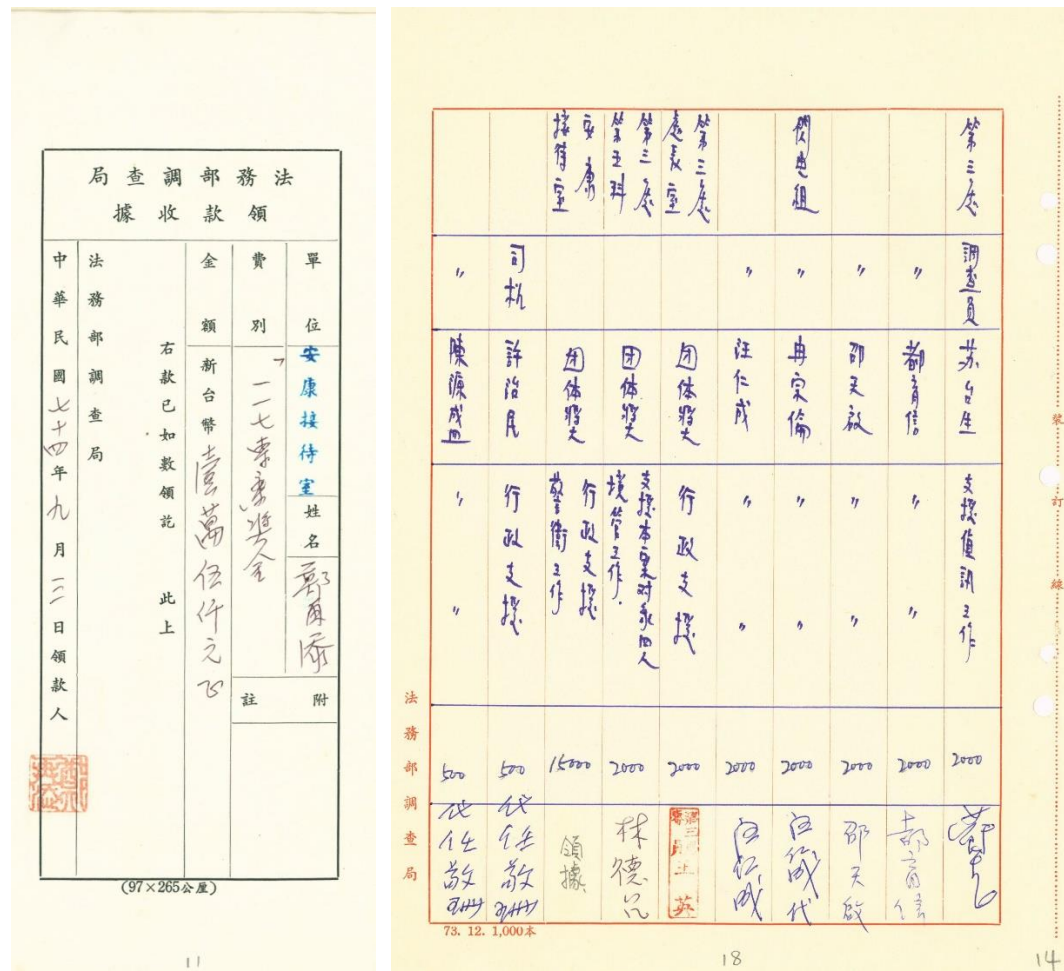 法務部調查局
領款收據
單位 安康接待室 姓名 郭再添
費別 一一七專案獎金
附註
金額 新台幣壹萬伍仟元正
右款已如數領訖 此上
法務部調查局
中華民國七十四年九月三日領款人
(97×265公厘)
11
第三處 調查員 苏台生 支援偵訊工作 2000
〃 都育信 〃 〃 2000 都育信
〃 邵天啟 〃 〃 2000 邵天啟
〃 冉宗倫 〃 〃 2000 汪仁成代
〃 汪仁成 〃 〃 2000 汪仁成
第三處處長室 团体獎 行政支援 2000
第三處第五科 团体獎 支援本案对象四人境管工作. 2000 林德
安康接待室 团体獎 行政支援警衛工作 15000 領據
司机 許治民 行政支援 500 代 任敬
〃 陳源成 〃 〃 500 代 任敬
法務部調查局
73. 12. 1,000本
裝訂線
18
14